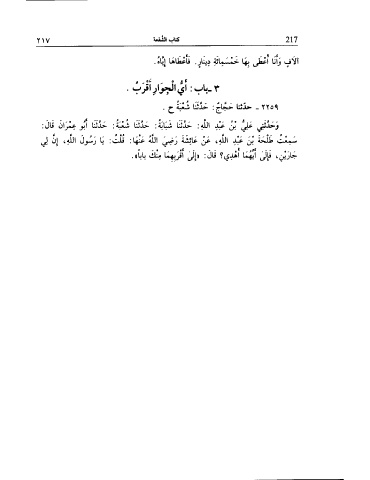 217 كتاب الشفعة ٢١٧
آلافٍ وَأَنَا أُعْطَى بِهَا خَمْسَمِائَةِ دِينَارٍ. فَأَعْطَاهَا إِيَّاهُ.
٣ ـ باب: أَيُّ الْجِوَارِ أَقْرَبُ .
٢٢٥٩ - حدّثنا حَجَّاجٌ: حَدَّثَنَا شُعْبَةُ ح .
وَحَدَّثَنِي عَلِيُّ بْنُ عَبْدِ اللَّهِ: حَدَّثَنَا شَبَابَةُ: حَدَّثَنَا شُعْبَةُ: حَدَّثَنَا أَبُو عِمْرَانَ قَالَ:
سَمِعْتُ طَلْحَةَ بْنَ عَبْدِ اللَّهِ، عَنْ عَائِشَةَ رَضِيَ اللَّهُ عَنْهَا: قُلْتُ: يَا رَسُولَ اللَّهِ، إِنَّ لِي
جَارَيْنِ، فَإِلَى أَيِّهِمَا أُهْدِي؟ قَالَ: «إِلَى أَقْرَبِهِمَا مِنْكَ باباً».